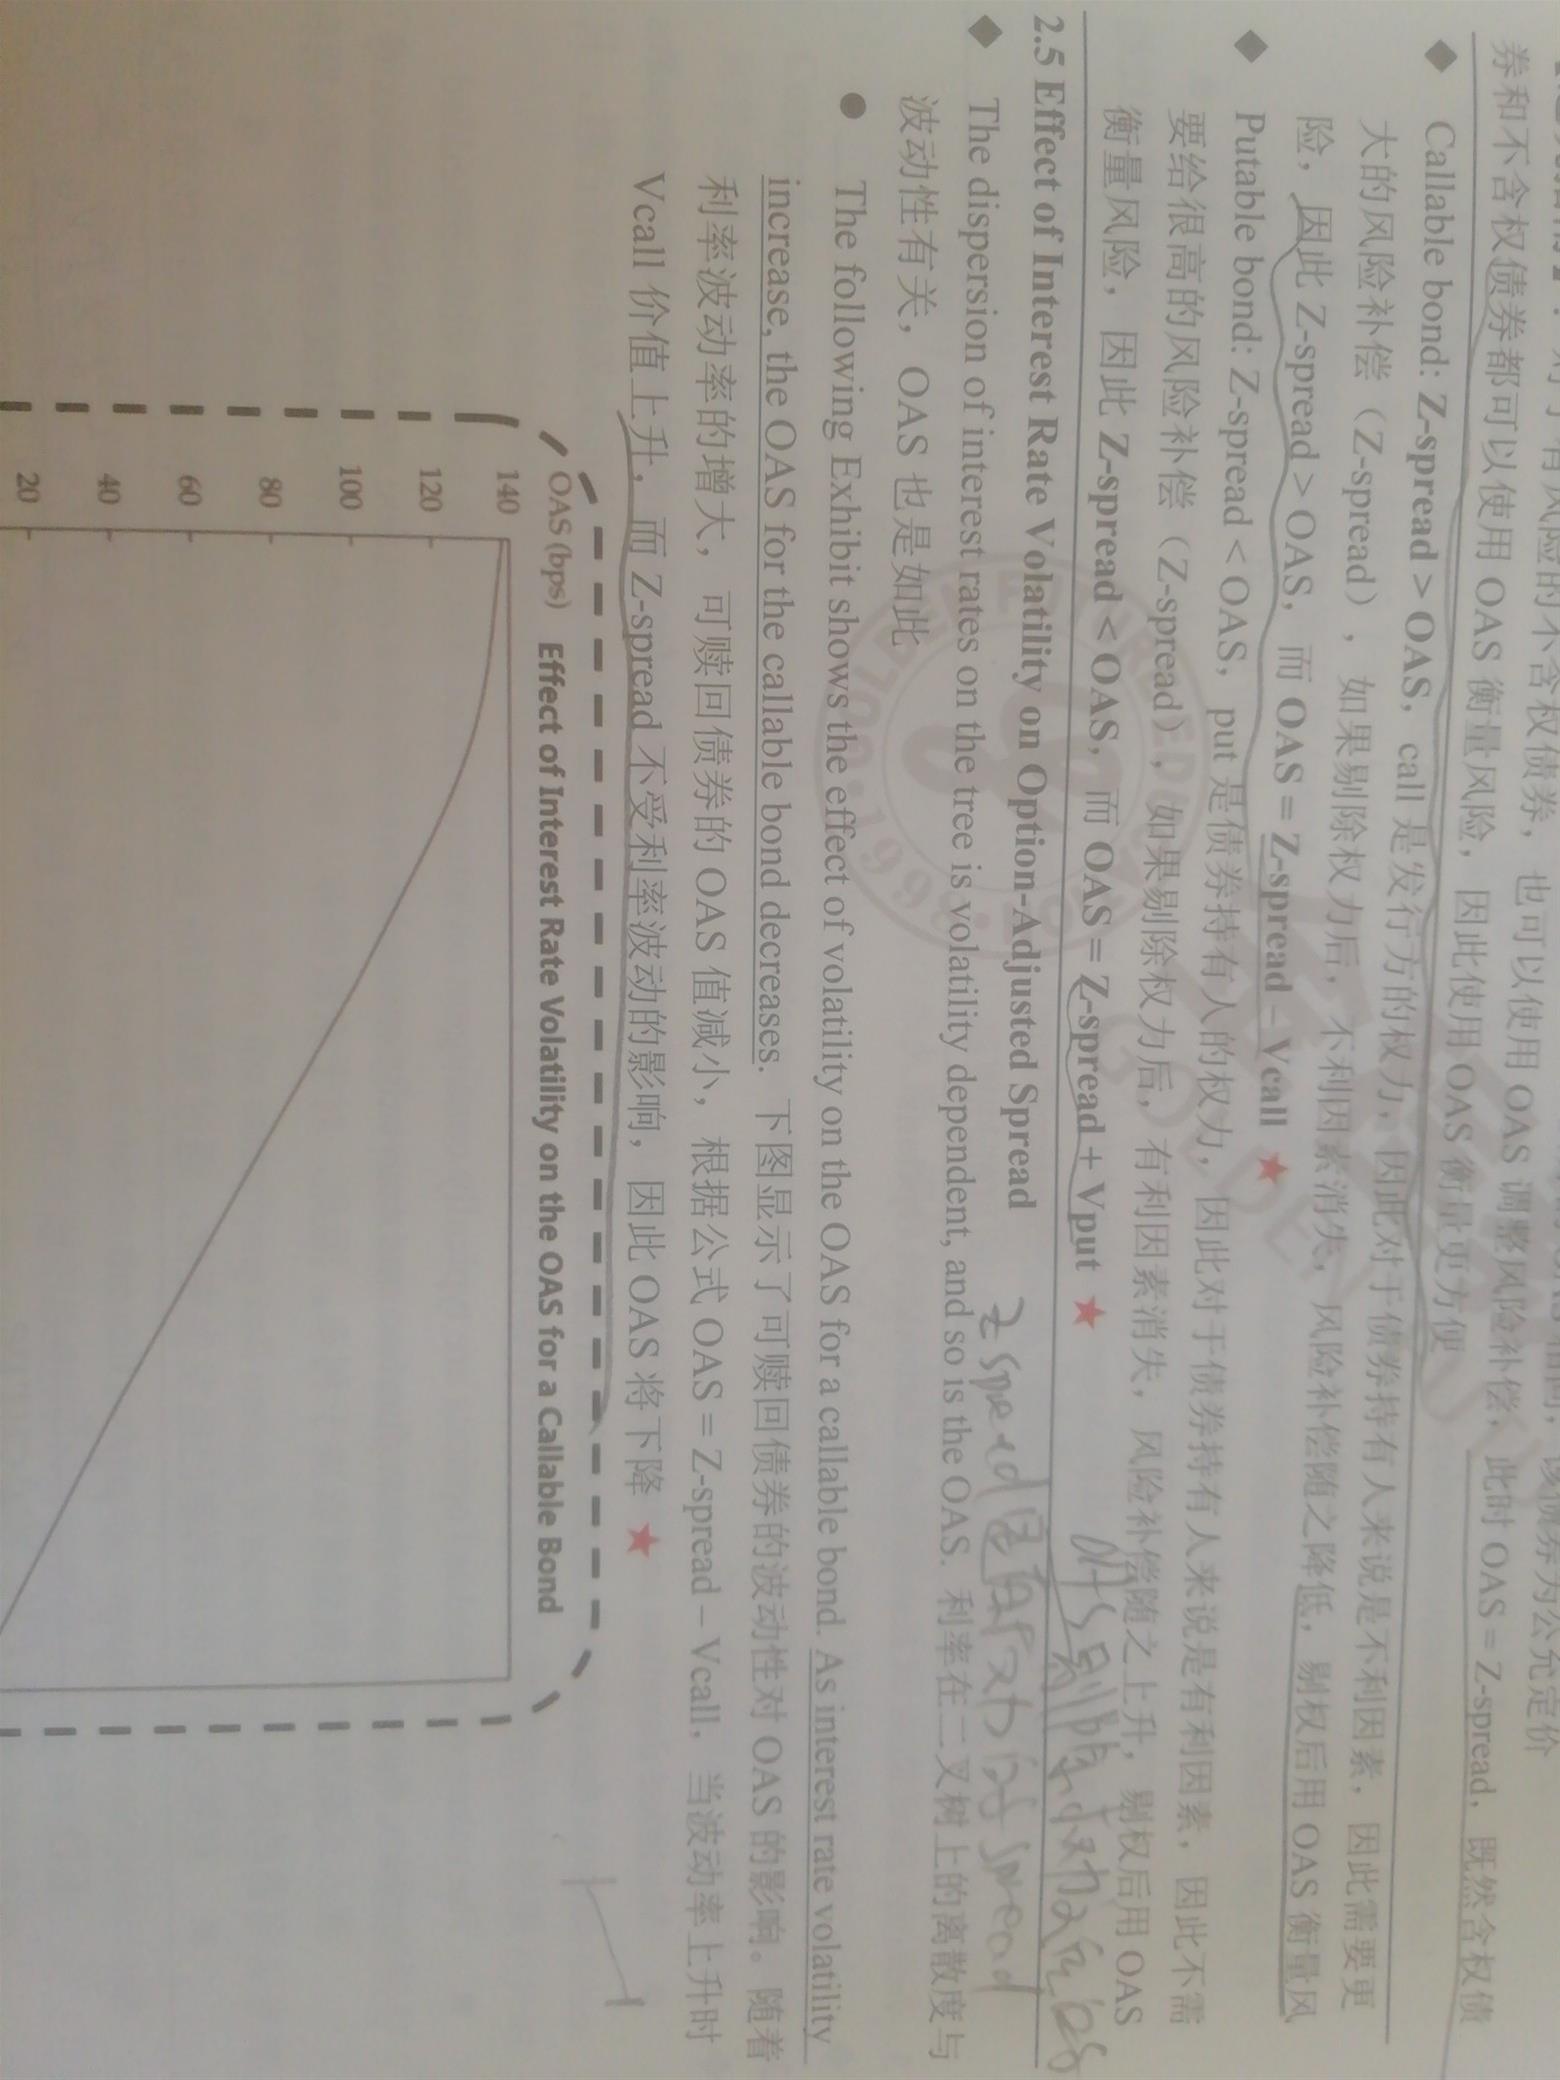 券和不含权债券都可以使用 OAS 衡量风险，因此使用 OAS 调整风险补偿，此时 OAS = Z-spread，既然含权债
◆ Callable bond: Z-spread > OAS，call 是发行方的权力，因此对于债券持有人来说是不利因素，因此需要更
大的风险补偿（Z-spread），如果剔除权力后，不利因素消失，风险补偿随之降低，剔权后用 OAS 衡量风
险，因此 Z-spread > OAS，而 OAS = Z-spread − Vcall ★
◆ Putable bond: Z-spread < OAS，put 是债券持有人的权力，因此对于债券持有人来说是有利因素，因此不需
要给很高的风险补偿（Z-spread），如果剔除权力后，有利因素消失，风险补偿随之上升，剔权后用 OAS
衡量风险，因此 Z-spread < OAS，而 OAS = Z-spread + Vput ★
2.5 Effect of Interest Rate Volatility on Option-Adjusted Spread
◆ The dispersion of interest rates on the tree is volatility dependent, and so is the OAS. 利率在二叉树上的离散度与
波动性有关，OAS 也是如此
● The following Exhibit shows the effect of volatility on the OAS for a callable bond. As interest rate volatility
increase, the OAS for the callable bond decreases. 下图显示了可赎回债券的波动性对 OAS 的影响。随着
利率波动率的增大，可赎回债券的 OAS 值减小，根据公式 OAS = Z-spread − Vcall，当波动率上升时
Vcall 价值上升，而 Z-spread 不受利率波动的影响，因此 OAS 将下降 ★
OAS (bps) Effect of Interest Rate Volatility on the OAS for a Callable Bond
140
120
100
80
60
40
20